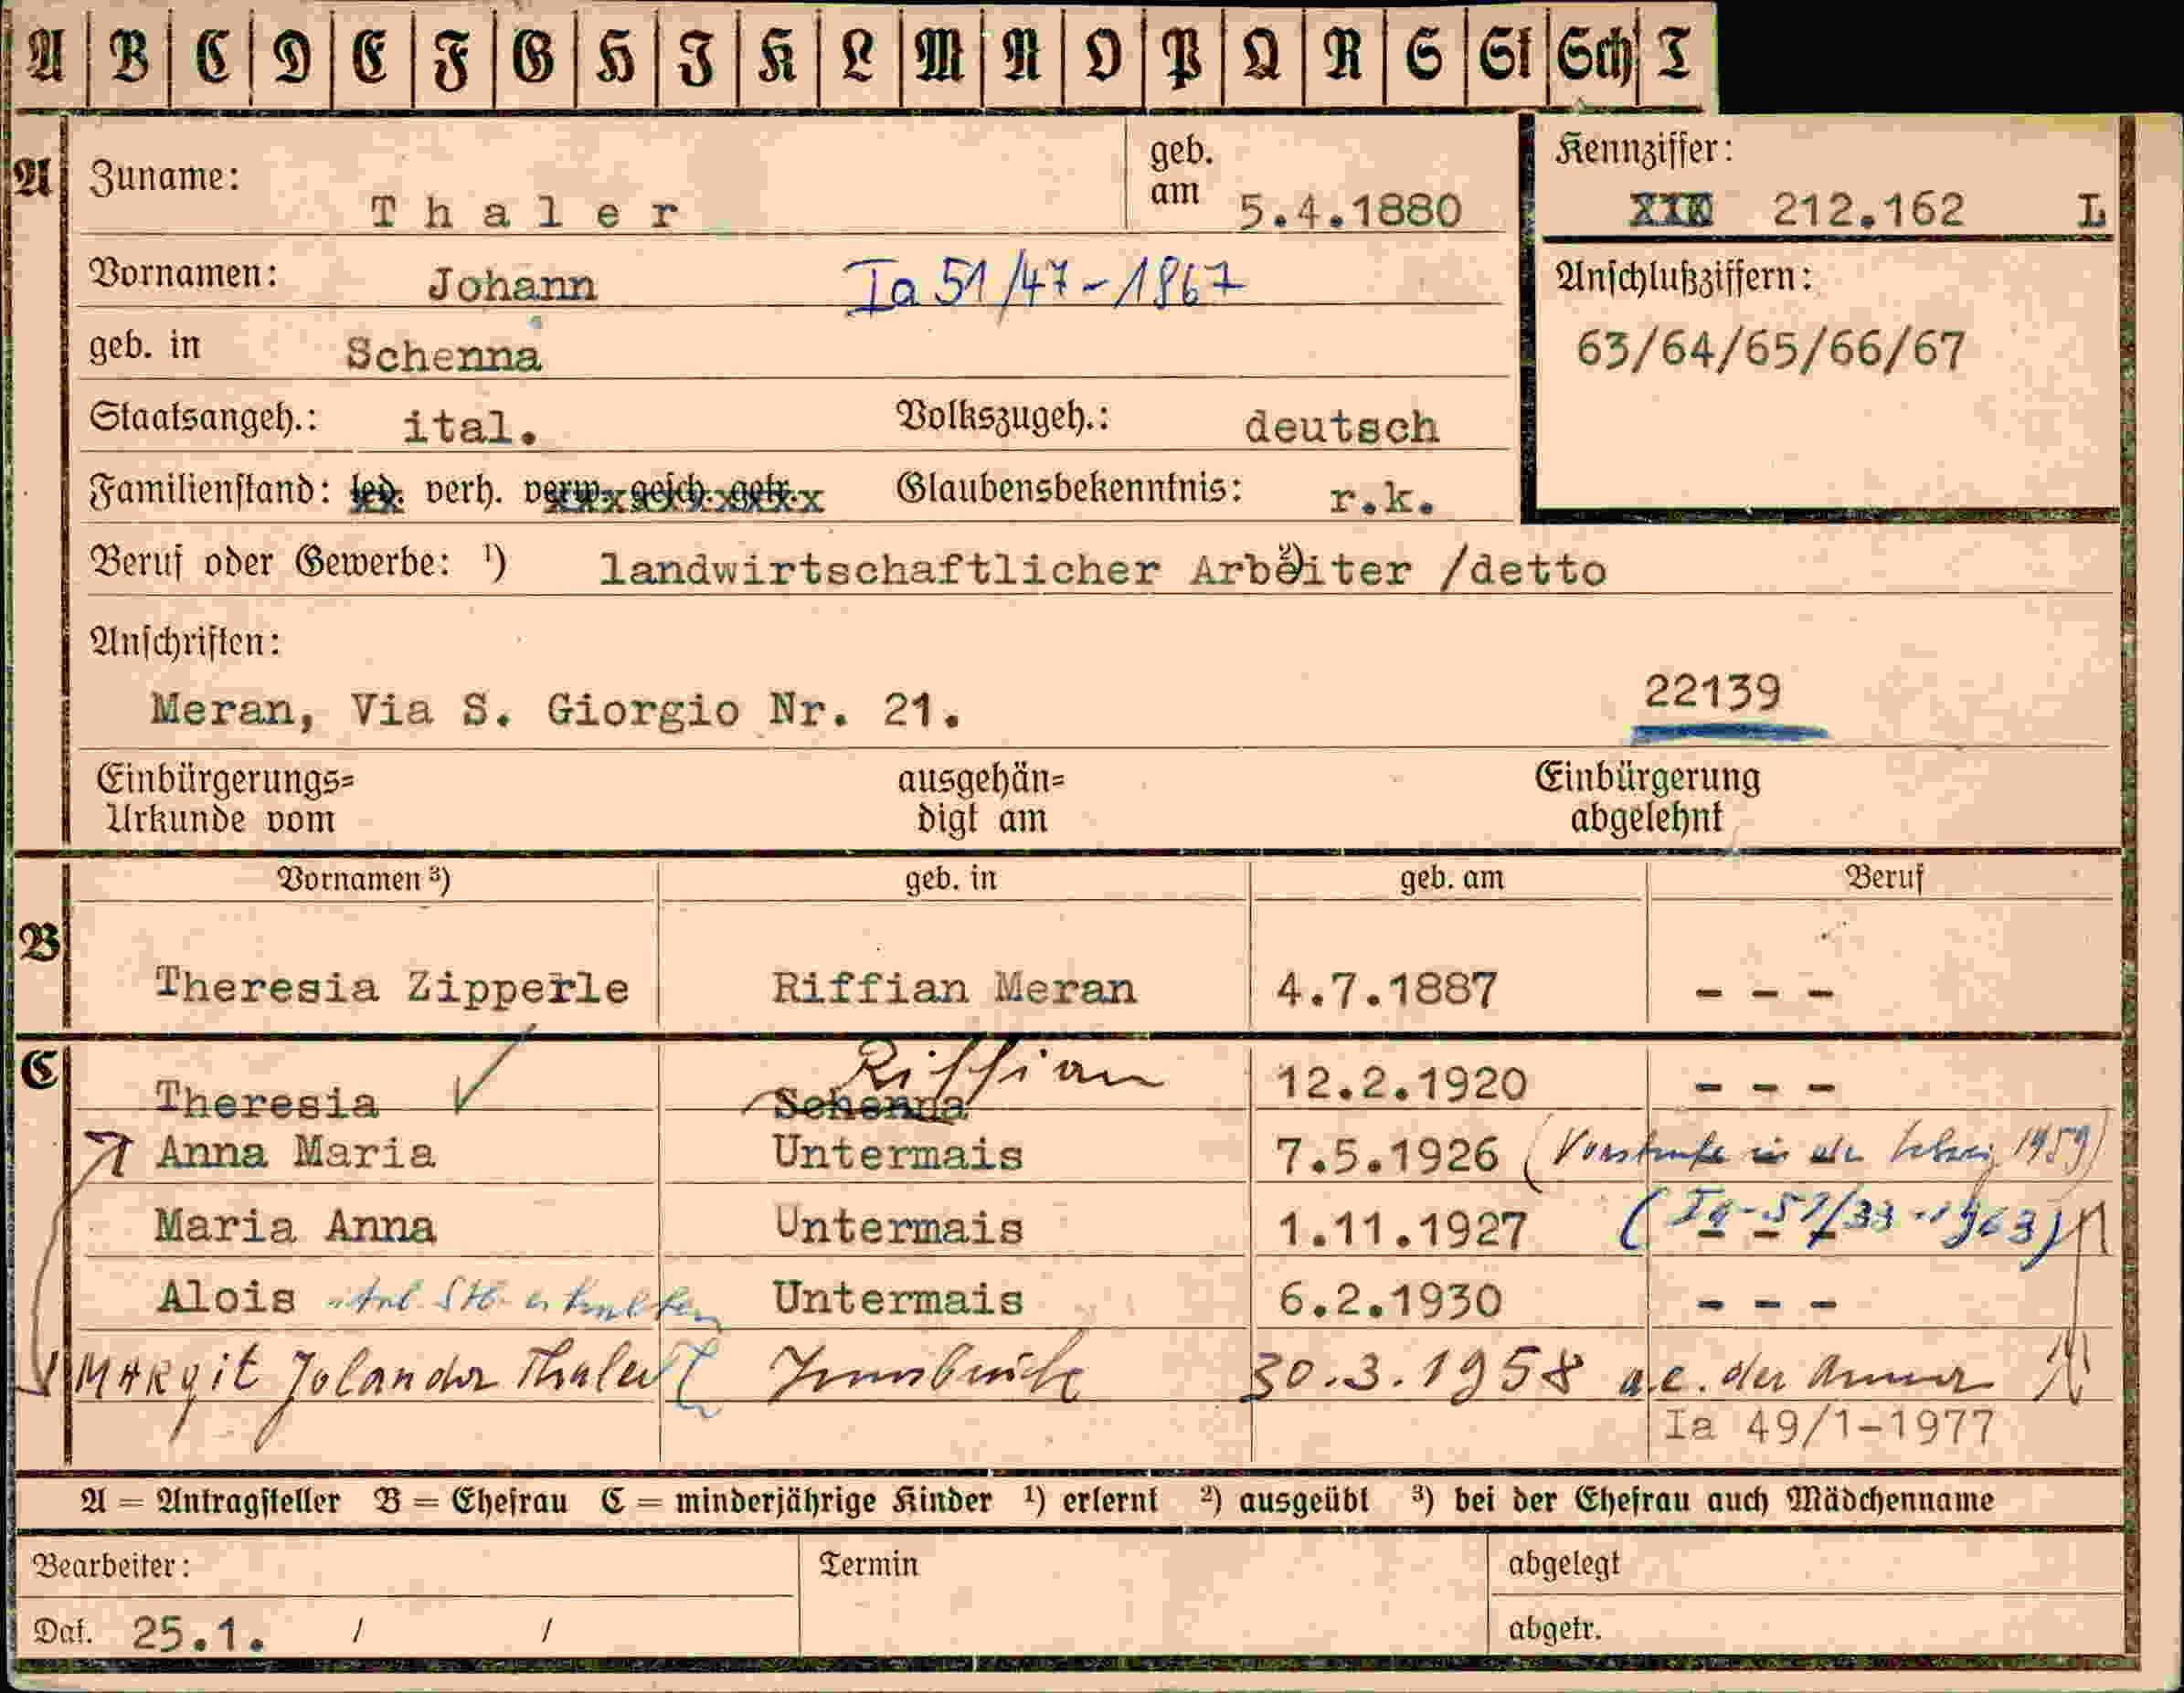 A B C D E F G H I K L M N O P Q R S St Sch T
A Zuname: Thaler geb. am 5.4.1880
Kennziffer: XIX 212.162 L
Vornamen: Johann Ia 51/47-1867
Anschlußziffern:
63/64/65/66/67
geb. in Schenna
Staatsangeh.: ital. Volkszugeh.: deutsch
Familienstand: led. verh. verw. gesch. getr. Glaubensbekenntnis: r.k.
Beruf oder Gewerbe: ¹) landwirtschaftlicher Arbeiter ²) /detto
Anschriften:
Meran, Via S. Giorgio Nr. 21. 22139
Einbürgerungs= Urkunde vom ausgehän= digt am Einbürgerung abgelehnt
Vornamen ³) geb. in geb. am Beruf
B Theresia Zipperle Riffian Meran 4.7.1887 - - -
C Theresia Schenna Riffian 12.2.1920 - - -
Anna Maria Untermais 7.5.1926 ( in 1959)
Maria Anna Untermais 1.11.1927 - - - (Ia-51/33-1963)
Alois Untermais 6.2.1930 - - -
Margit Jolanda Thaler Innsbruck 30.3.1958 a.e. der Anna
Ia 49/1-1977
A = Antragsteller B = Ehefrau C = minderjährige Kinder ¹) erlernt ²) ausgeübt ³) bei der Ehefrau auch Mädchenname
Bearbeiter: Termin abgelegt
Dat. 25.1. / / abgetr.